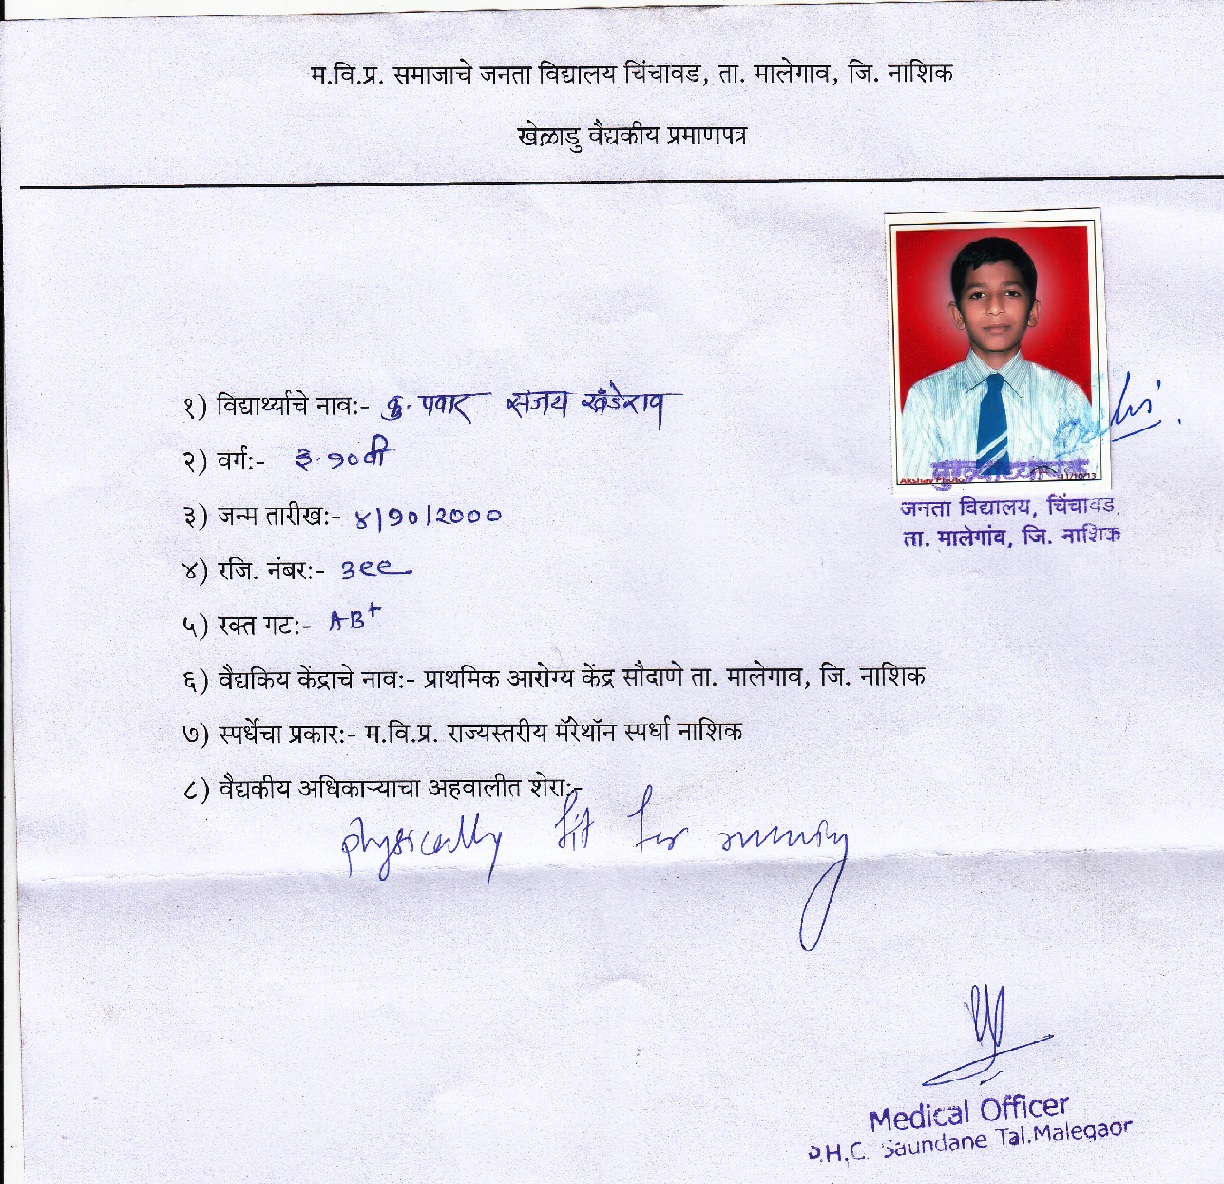 म.वि.प्र. समाजाचे जनता विद्यालय चिंचावड, ता. मालेगाव, जि. नाशिक
खेळाडु वैद्यकीय प्रमाणपत्र
१) विद्यार्थ्याचे नावः- कु. पवार संजय खंडेराव
२) वर्गः- इ. १० वी
३) जन्म तारीखः- ४/१०/२०००
४) रजि. नंबरः- ३९९
५) रक्त गटः- AB+
६) वैद्यकिय केंद्राचे नावः- प्राथमिक आरोग्य केंद्र सौदाणे ता. मालेगाव, जि. नाशिक
७) स्पर्धेचा प्रकारः- म.वि.प्र. राज्यस्तरीय मॅरेथॉन स्पर्धा नाशिक
८) वैद्यकीय अधिकाऱ्याचा अहवालीत शेराः-
physically fit for running
Akshay Photo 11/10/13
मुख्याध्यापक
जनता विद्यालय, चिंचावड
ता. मालेगांव, जि. नाशिक
Medical Officer
P.H.C. Saundane Tal.Malegaor